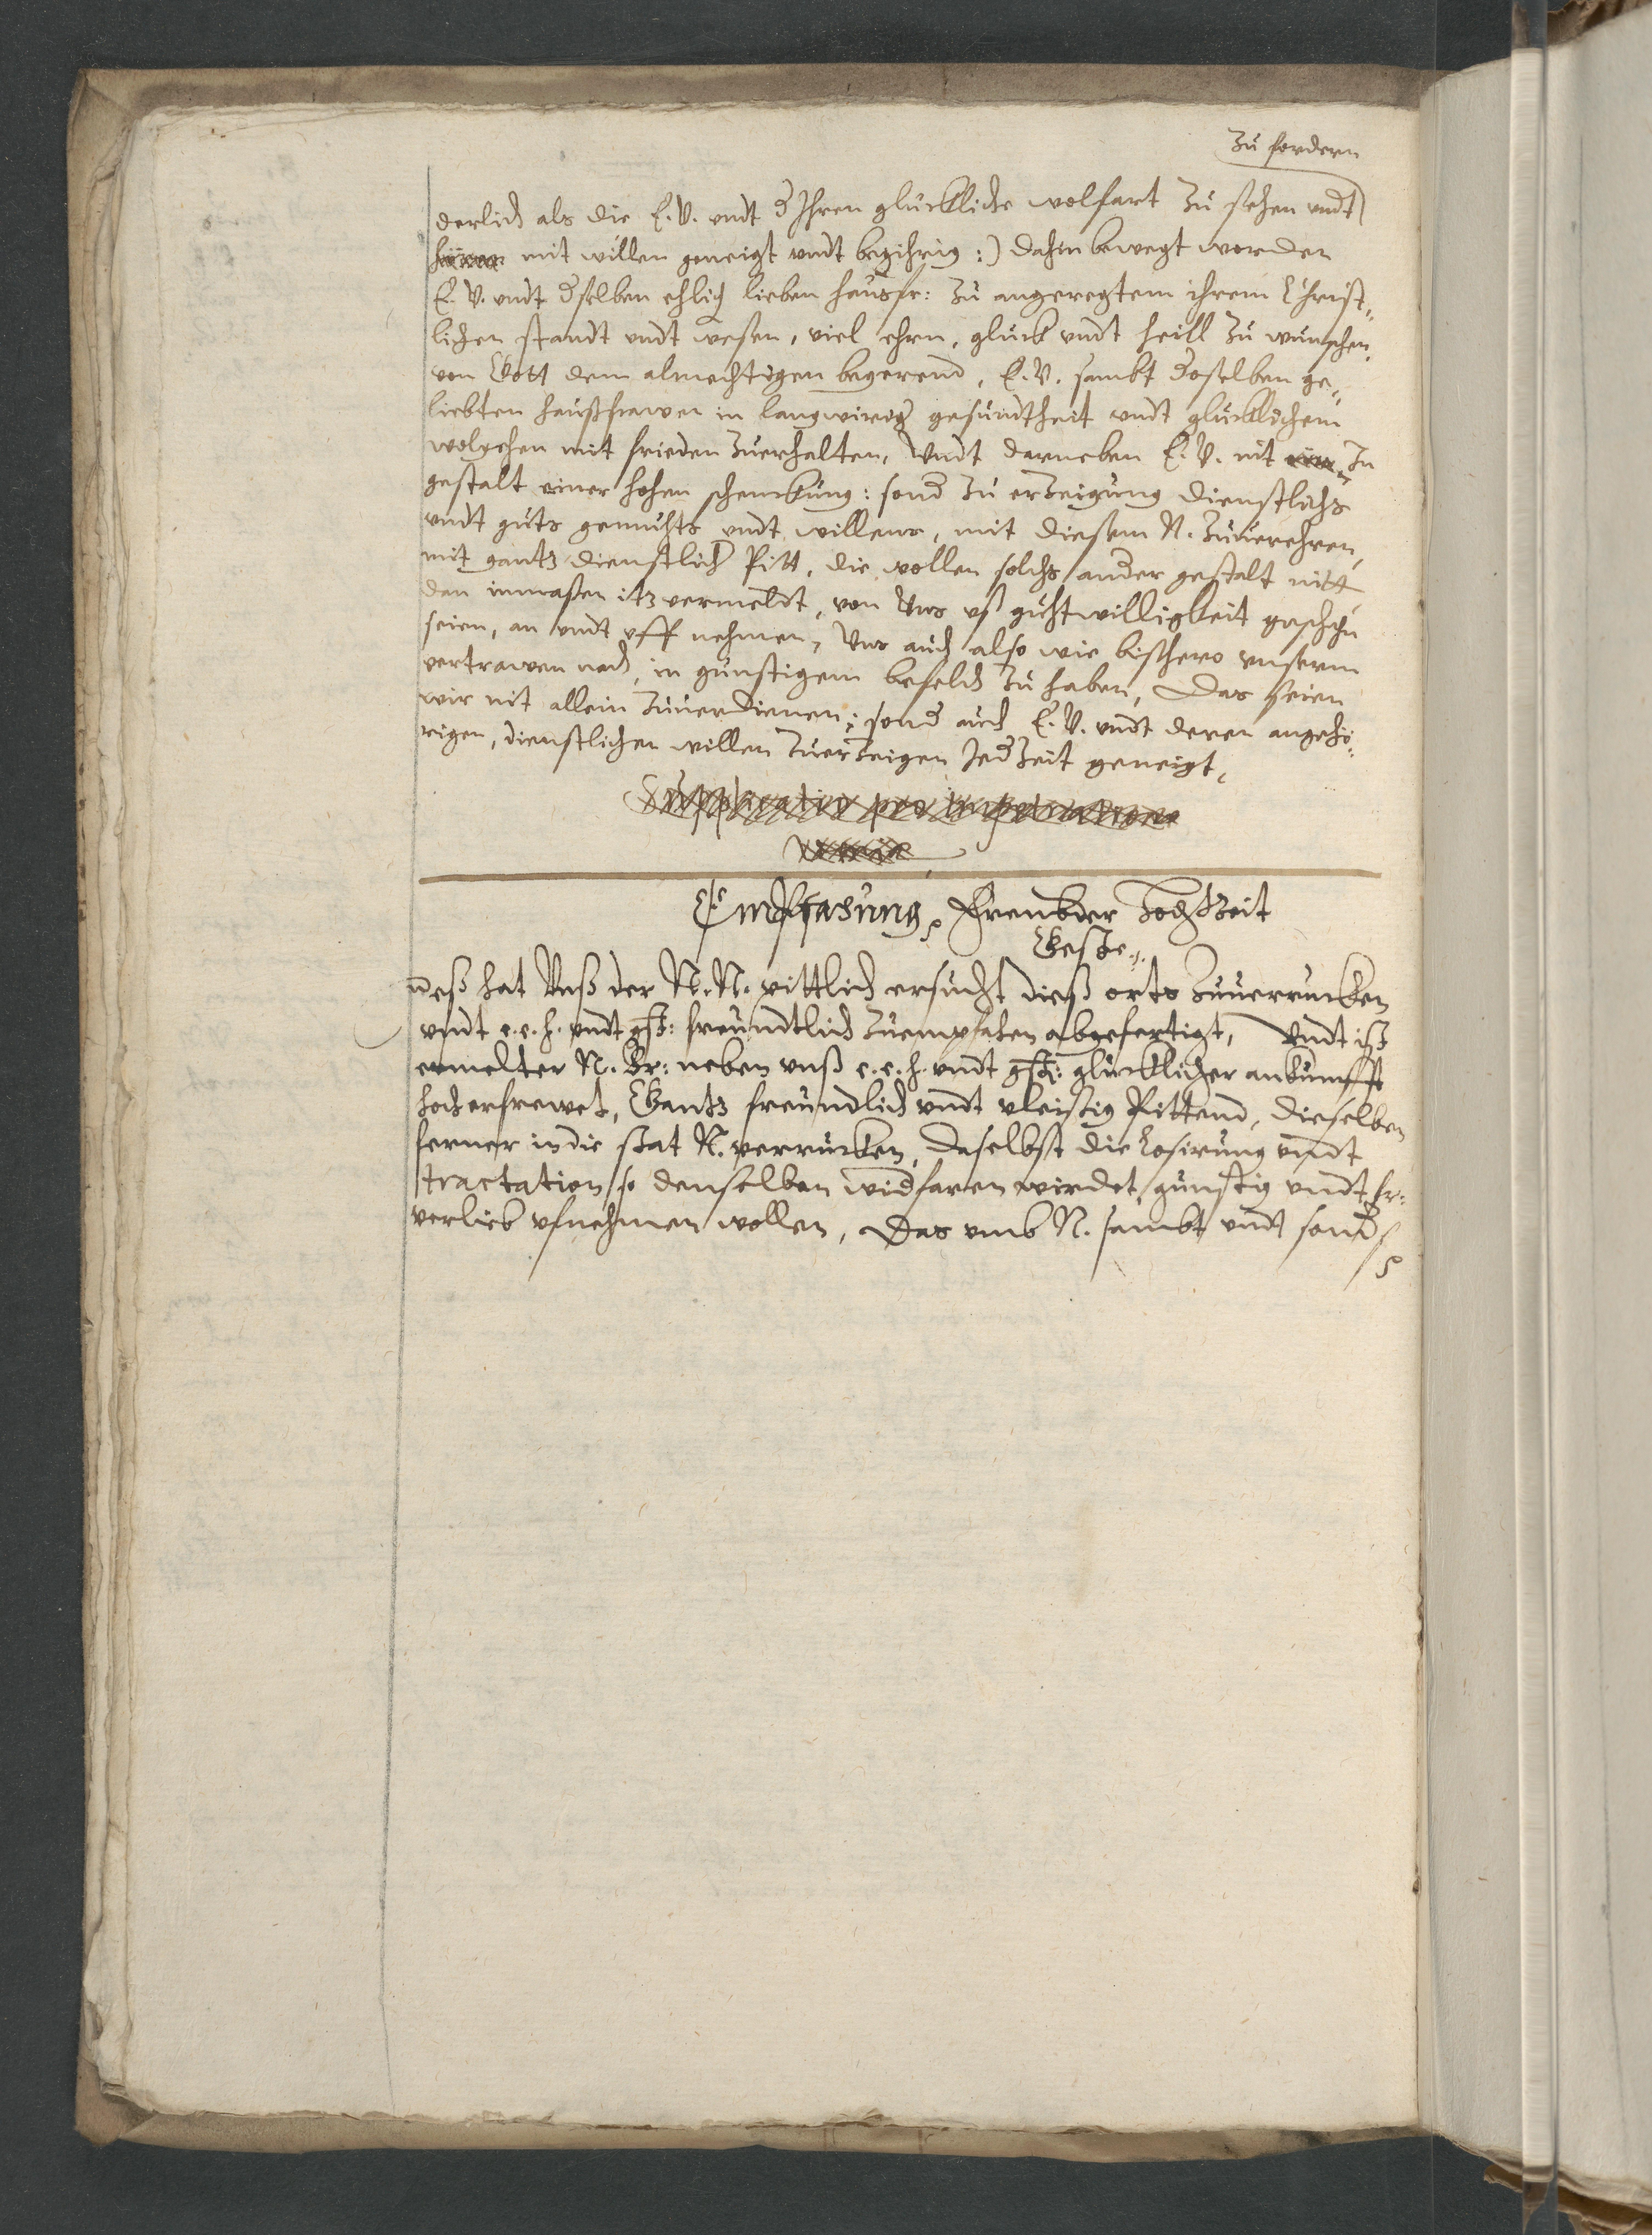 zu fordern
derlich als die E. V. vndt d Ihren glückliche wolfart zu sehen vndt
mit willen geneigt vndt begihrig :) dahin bewegt worden
E. V. vndt dselben ehlich lieben hausfr: zu angeregtem ihrem Christ„
lichen standt vndt wesen, viel ehrn, glück vndt heill zu wunschen,
von Gott dem almechtigen begerend, E. V. sambt doselben ge„
liebten haußfrawen in langwirig gesundtheit vndt glücklichem
wolgehen mit frieden zuerhalten, Vndt darneben E. V. nit in
gestalt einer hohen schenckung: sond zu erzeigung dienstlichs
vndt guts gemuhts vndt willens, mit diesem N. zuuerehren,
mit gantz dienstlich Pitt, die wollen solchs ander gestalt nitt
dan inmaßen itz vermeldt, von Uns vß guhtwilligkeit geschehn
seien, an vndt vff nehmen, Uns auch also wie bischero vnserm
vertrawen nach, in günstigem befelch zu haben, Das seien
wir nit allein zuuerdienen; sond auch E. V. vndt deren angehö„
rigen, dienstlichen willen zuerzeigen Jedzeit geneigt,
Supplicatio pro impetratione
Empfahung frembder Hochzeit
Geste.
Deß hat Unß der N. N. pittlich ersucht dieß orts zuuerrucken
vndt e. e. h. vndt gst: freundtlich zuempfahen abgefertigt, Vndt ist
ermelter N. Br: neben vnß e. e. h. vndt gst: glücklicher ankunfft
hocherfrewet, Gantz freundlich vndt vleißig Pittend, dieselben
ferner in die stat N. verrücken, daselbst die Losirung vndt
tractation so denselben widfaren wirdet, günstig vndt fr:
verlieb vfnehmen wollen, Das vmb N. sambt vndt sond